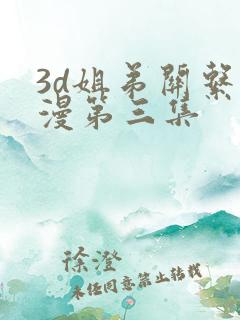 3d姐弟関繫
漫第三集
徐澄
未经同意禁止转载